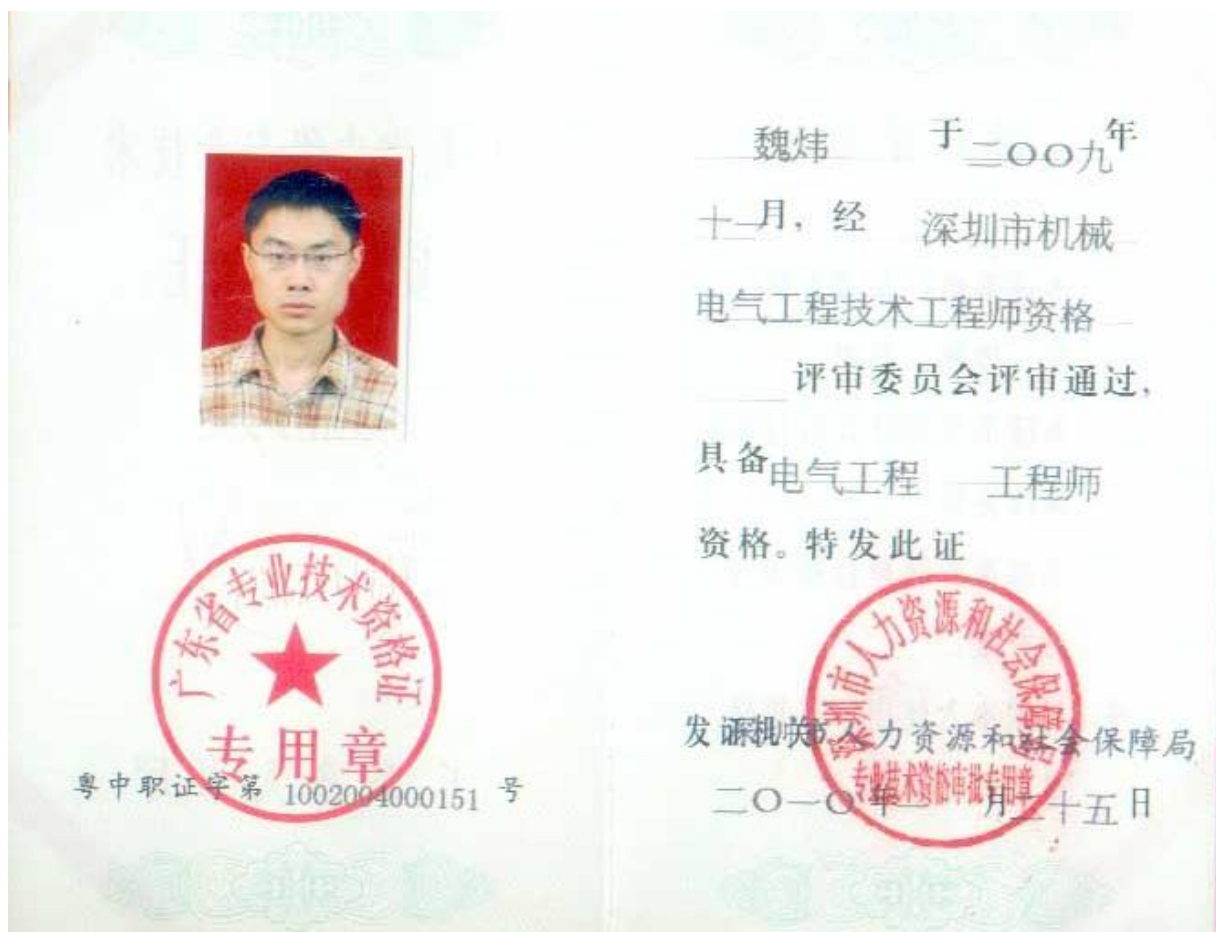 广东省专业技术资格证
专用章
粤中职证字第 1002004000151 号
魏炜 于二〇〇九年
十一月，经 深圳市机械
电气工程技术工程师资格
评审委员会评审通过，
具备电气工程 工程师
资格。特发此证
深圳市人力资源和社会保障局
专业技术资格审批专用章
发证机关 深圳市人力资源和社会保障局
二〇一〇年 月二十五日